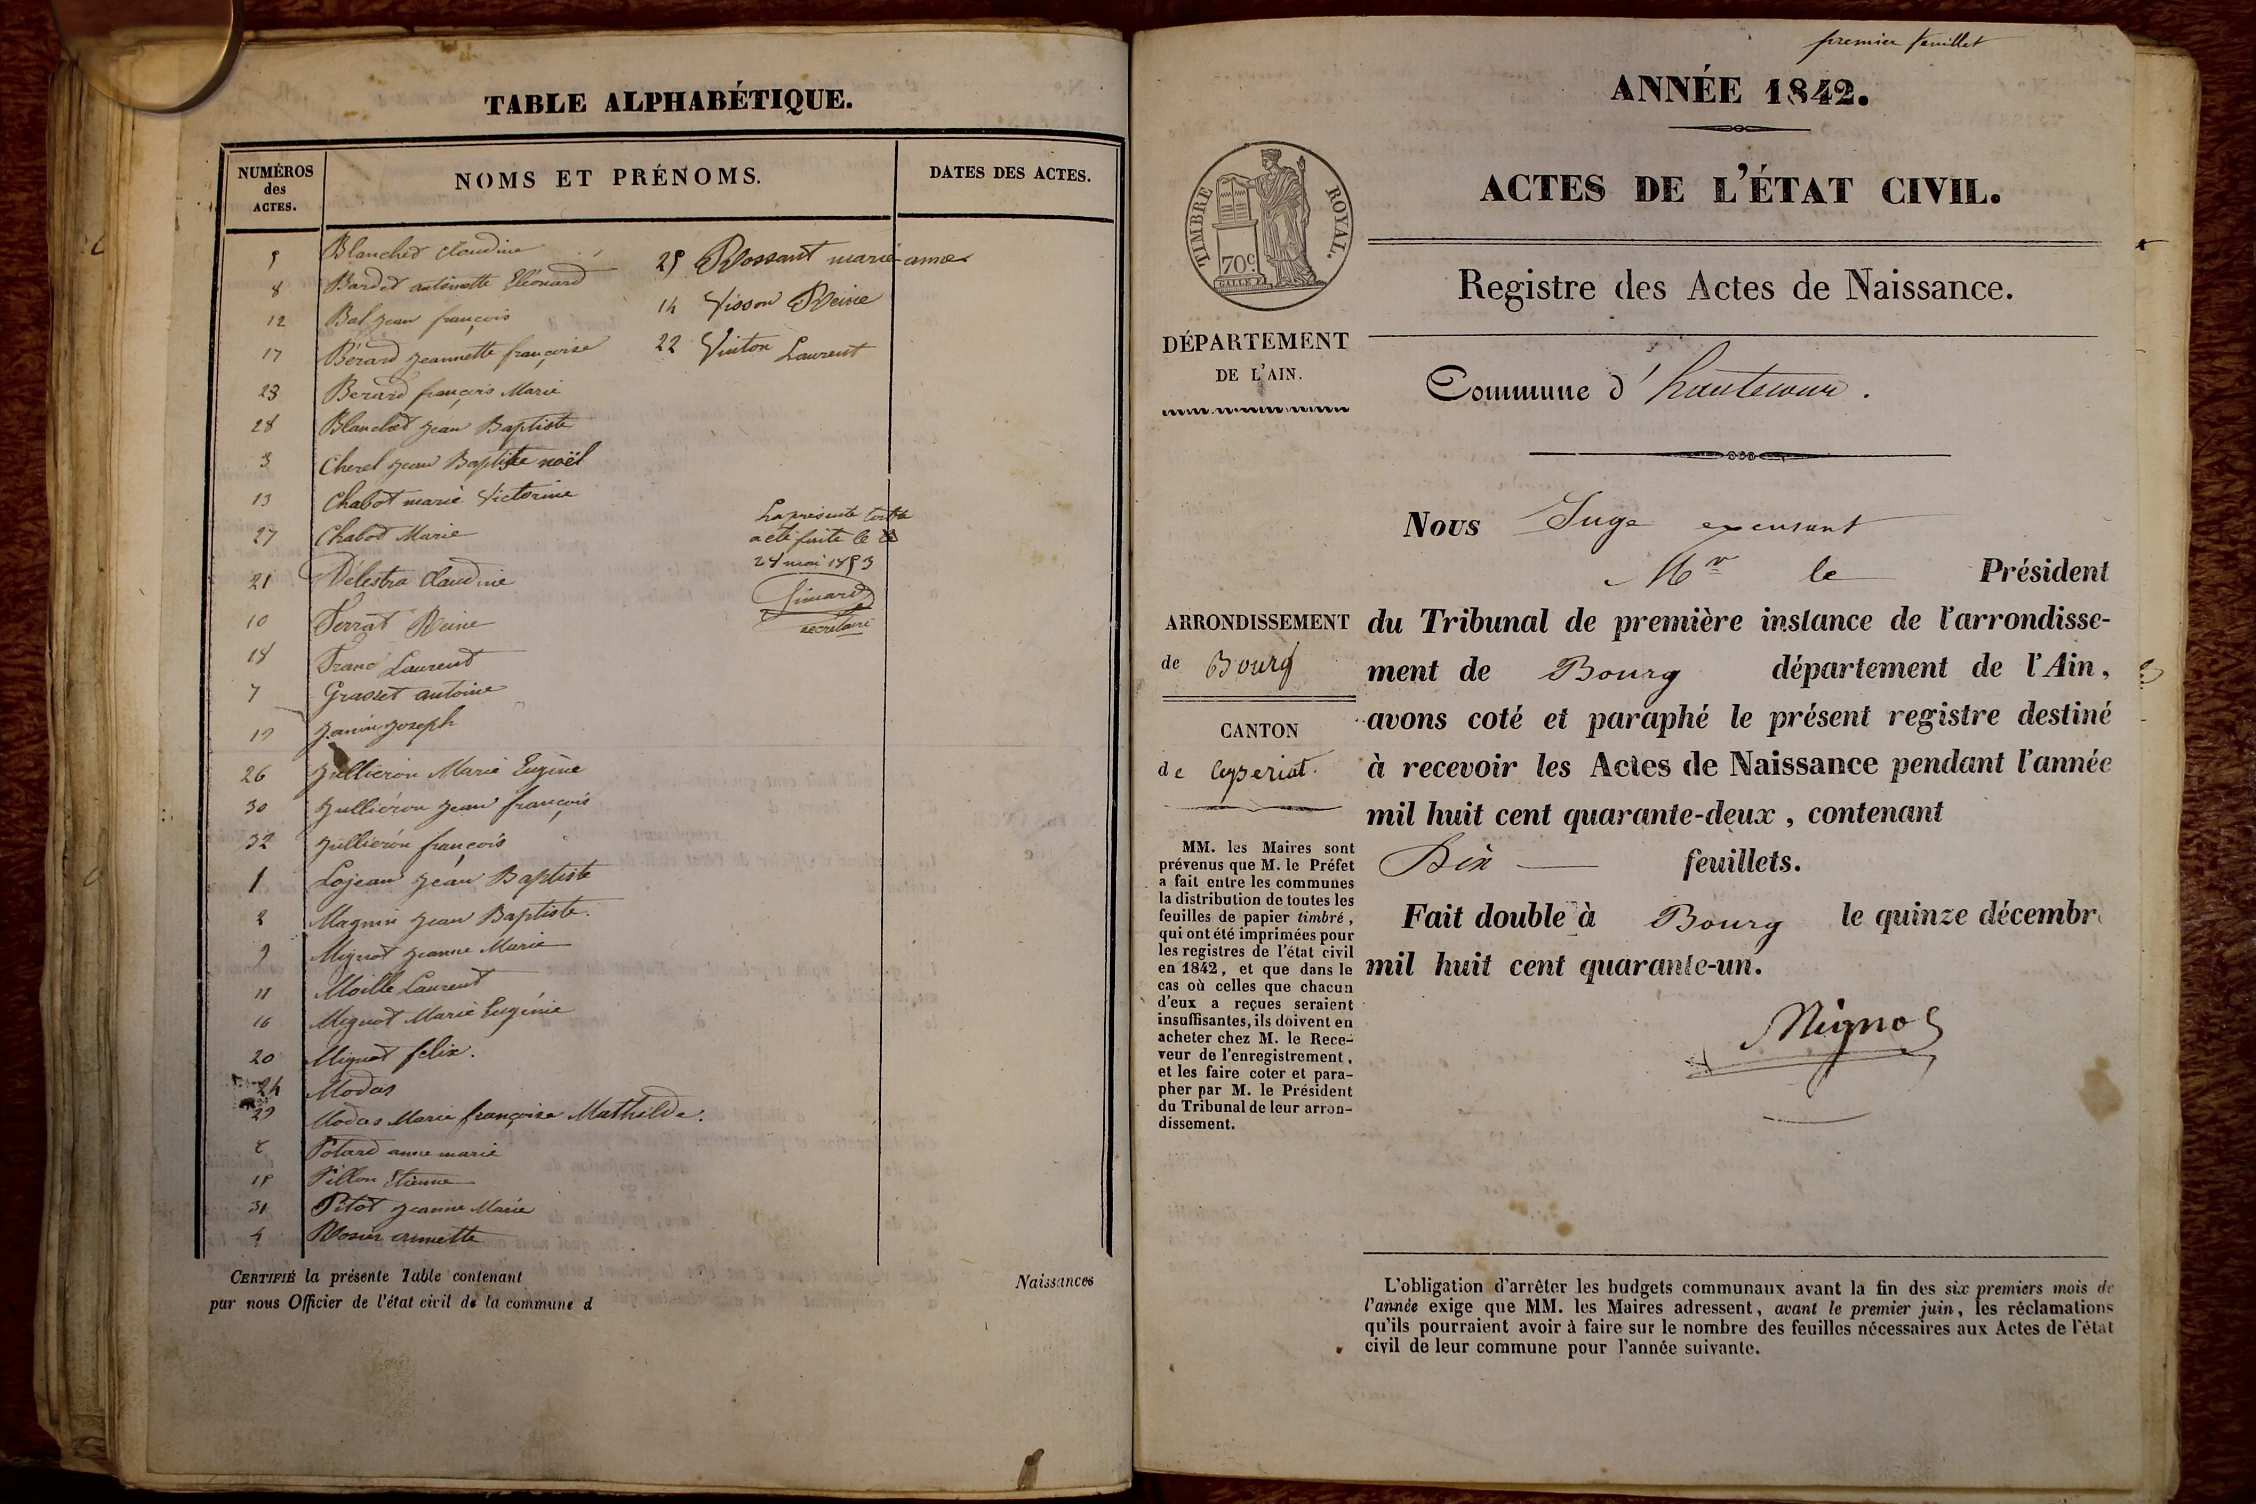 TABLE ALPHABÉTIQUE.
NUMÉROS
des
ACTES.
NOMS ET PRÉNOMS.
DATES DES ACTES.
5 Blanched Claudine
8 Bardet antoinette Eléonard
12 Bal jean françois
17 Bérard jeannette françoise
23 Berard françois Marie
28 Blanched jean Baptiste
3 Cherel jean Baptiste noël
13 Chabot marie Victorine
27 Chabod Marie
21 Délestra Claudine
10 Ferrat Reine
18 Franc Laurent
7 Grasset antoine
19 Janin joseph
26 Jullieron Marie Eugène
30 Jullieron jean françois
32 Jullieron françois
1 Lojean jean Baptiste
2 Magnin jean Baptiste.
9 Mignot jeanne Marie
11 Moille Laurent
16 Mignot Marie Eugénie
20 Mignot felix.
24 Modas
29 Modas Marie françoise Mathilde.
6 Potard anne marie
15 Pillon Etienne
31 Pitot jeanne Marie
4 Rosier annette
25 Rossant marie anne
14 Visson Reine
22 Vuiton Laurent
La présente table
a été faite le
28 mai 1853
secrétaire
CERTIFIÉ la présente Table contenant
Naissances
par nous Officier de l'état civil de la commune d
premier feuillet
ANNÉE 1842.
ACTES DE L'ÉTAT CIVIL.
TIMBRE ROYAL.
70c
Registre des Actes de Naissance.
DÉPARTEMENT
DE L'AIN.
Commune d'hautecour.
Nous Juge excusant
Mr le Président
ARRONDISSEMENT
de Bourg
du Tribunal de première instance de l'arrondisse-
ment de Bourg département de l'Ain,
avons coté et paraphé le présent registre destiné
à recevoir les Actes de Naissance pendant l'année
mil huit cent quarante-deux, contenant
Dix feuillets.
Fait double à Bourg le quinze décembr
mil huit cent quarante-un.
CANTON
de Ceyseriat.
MM. les Maires sont
prévenus que M. le Préfet
a fait entre les communes
la distribution de toutes les
feuilles de papier timbré,
qui ont été imprimées pour
les registres de l'état civil
en 1842, et que dans le
cas où celles que chacun
d'eux a reçues seraient
insuffisantes, ils doivent en
acheter chez M. le Rece-
veur de l'enregistrement,
et les faire coter et para-
pher par M. le Président
du Tribunal de leur arron-
dissement.
L'obligation d'arrêter les budgets communaux avant la fin des six premiers mois de
l'année exige que MM. les Maires adressent, avant le premier juin, les réclamations
qu'ils pourraient avoir à faire sur le nombre des feuilles nécessaires aux Actes de l'état
civil de leur commune pour l'année suivante.